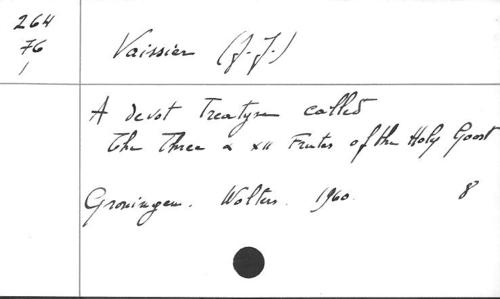 264
76
1
Vaissier (J.J.)
A devot Treatyse called
The Three & xii Frutes of the Holy Goost
Groningen. Wolters. 1960. 8